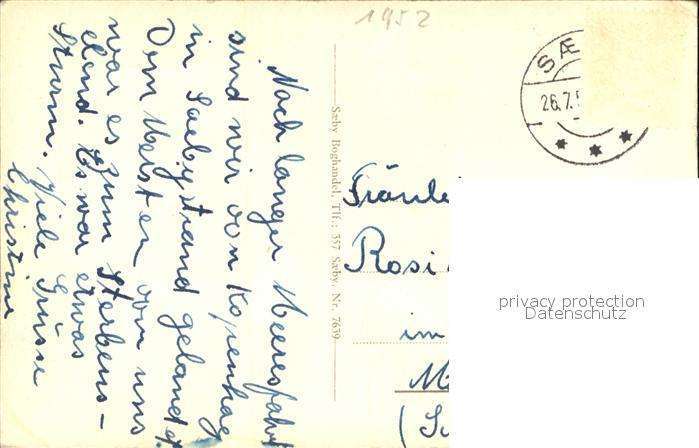 1952
SÆ
26.7.5
Nach langer Meeresfahrt
sind wir von Kopenhag
in Saebystrand gelandet.
Dem Meisten von uns
war es zum Sterbens-
elend. Es war etwas
Sturm. Viele Grüsse
Christine
Sæby Boghandel, Tlf.: 357 Sæby. Nr. 7639
Fräule
Rosi
im
M
(S
privacy protection
Datenschutz